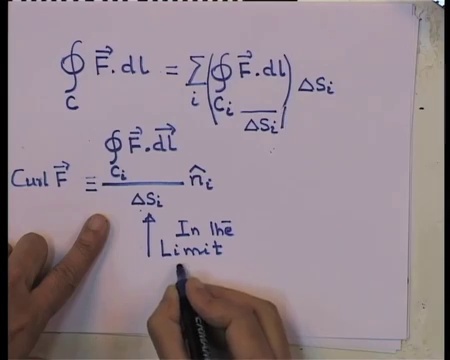 ∮_C F⃗.dl = Σ_i (∮_{C_i} F⃗.dl / ΔS_i) ΔS_i
Curl F⃗ ≡ ∮_{C_i} F⃗.d⃗l / ΔS_i n̂_i
↑ In the
Limit